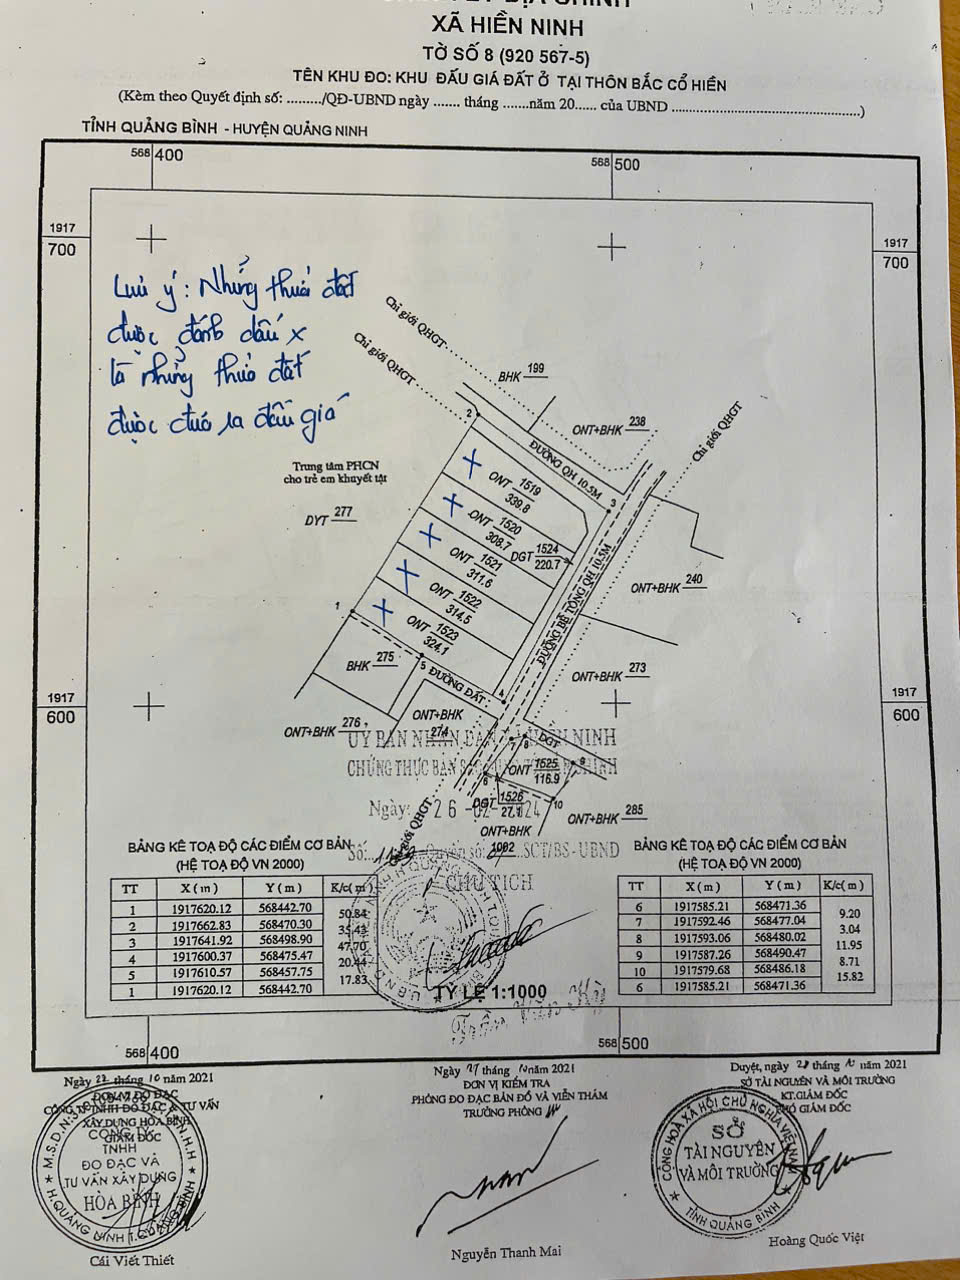 XÃ HIỀN NINH
TỜ SỐ 8 (920 567-5)
TÊN KHU ĐO: KHU ĐẤU GIÁ ĐẤT Ở TẠI THÔN BẮC CỔ HIỀN
(Kèm theo Quyết định số: ........./QĐ-UBND ngày ....... tháng .......năm 20...... của UBND ...................................................)
TỈNH QUẢNG BÌNH - HUYỆN QUẢNG NINH
568 400
568 500
1917
700
1917
700
Lưu ý: Những thửa đất
được đánh dấu x
là những thửa đất
được đưa ra đấu giá
Chỉ giới QHGT
Chỉ giới QHGT
BHK 199
ONT+BHK 238
Chỉ giới QHGT
2
ĐƯỜNG QH 10.5M
3
Trung tâm PHCN
cho trẻ em khuyết tật
DYT 277
X ONT 1519
339.8
X ONT 1520
308.7
X ONT 1521
311.6
X ONT 1522
314.5
X ONT 1523
324.1
DGT 1524
220.7
ĐƯỜNG BÊ TÔNG QH 10.5M
ONT+BHK 240
1
BHK 275
5
ĐƯỜNG ĐẤT
4
ONT+BHK 273
1917
600
1917
600
ONT+BHK 276
ONT+BHK
274
ỦY BAN NHÂN DÂN XÃ HIỀN NINH
7 8
DGT
ONT 1525
116.9
9
6
DGT 1526
27.1
10
Ngày: 26 -02- 2024
ONT+BHK 285
ONT+BHK
1002
Chỉ giới QHGT
SCT/BS-UBND
CHỦ TỊCH
BẢNG KÊ TOẠ ĐỘ CÁC ĐIỂM CƠ BẢN
(HỆ TOẠ ĐỘ VN 2000)
TT X (m) Y (m) K/c( m )
1 1917620.12 568442.70
50.84
2 1917662.83 568470.30
35.43
3 1917641.92 568498.90
47.70
4 1917600.37 568475.47
20.44
5 1917610.57 568457.75
17.83
1 1917620.12 568442.70
BẢNG KÊ TOẠ ĐỘ CÁC ĐIỂM CƠ BẢN
(HỆ TOẠ ĐỘ VN 2000)
TT X ( m ) Y ( m ) K/c( m )
6 1917585.21 568471.36
9.20
7 1917592.46 568477.04
3.04
8 1917593.06 568480.02
11.95
9 1917587.26 568490.47
8.71
10 1917579.68 568486.18
15.82
6 1917585.21 568471.36
TỶ LỆ 1:1000
Trần Văn Kỳ
568 400
568 500
Ngày 22 tháng 10 năm 2021
ĐƠN VỊ ĐO ĐẠC
CÔNG TY TNHH ĐO ĐẠC & TƯ VẤN
XÂY DỰNG HÒA BÌNH
GIÁM ĐỐC
CÔNG TY
TNHH
ĐO ĐẠC VÀ
TƯ VẤN XÂY DỰNG
HÒA BÌNH
Cái Viết Thiết
Ngày 27 tháng năm 2021
ĐƠN VỊ KIỂM TRA
PHÒNG ĐO ĐẠC BẢN ĐỒ VÀ VIỄN THÁM
TRƯỞNG PHÒNG
Nguyễn Thanh Mai
Duyệt, ngày 28 tháng năm 2021
SỞ TÀI NGUYÊN VÀ MÔI TRƯỜNG
KT.GIÁM ĐỐC
PHÓ GIÁM ĐỐC
CỘNG HOÀ XÃ HỘI CHỦ NGHĨA VIỆT NAM
SỞ
TÀI NGUYÊN
VÀ MÔI TRƯỜNG
TỈNH QUẢNG BÌNH
Hoàng Quốc Việt